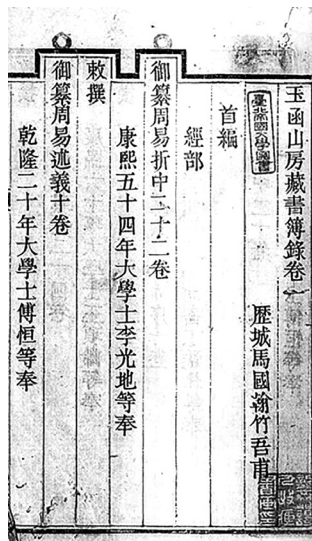 玉函山房藏書簿錄卷一
歷城馬國瀚竹吾甫
臺北帝國大學圖書
首編
經部
御纂周易折中二十二卷
康熙五十四年大學士李光地等奉
敕撰
御纂周易述義十卷
乾隆二十年大學士傅恒等奉